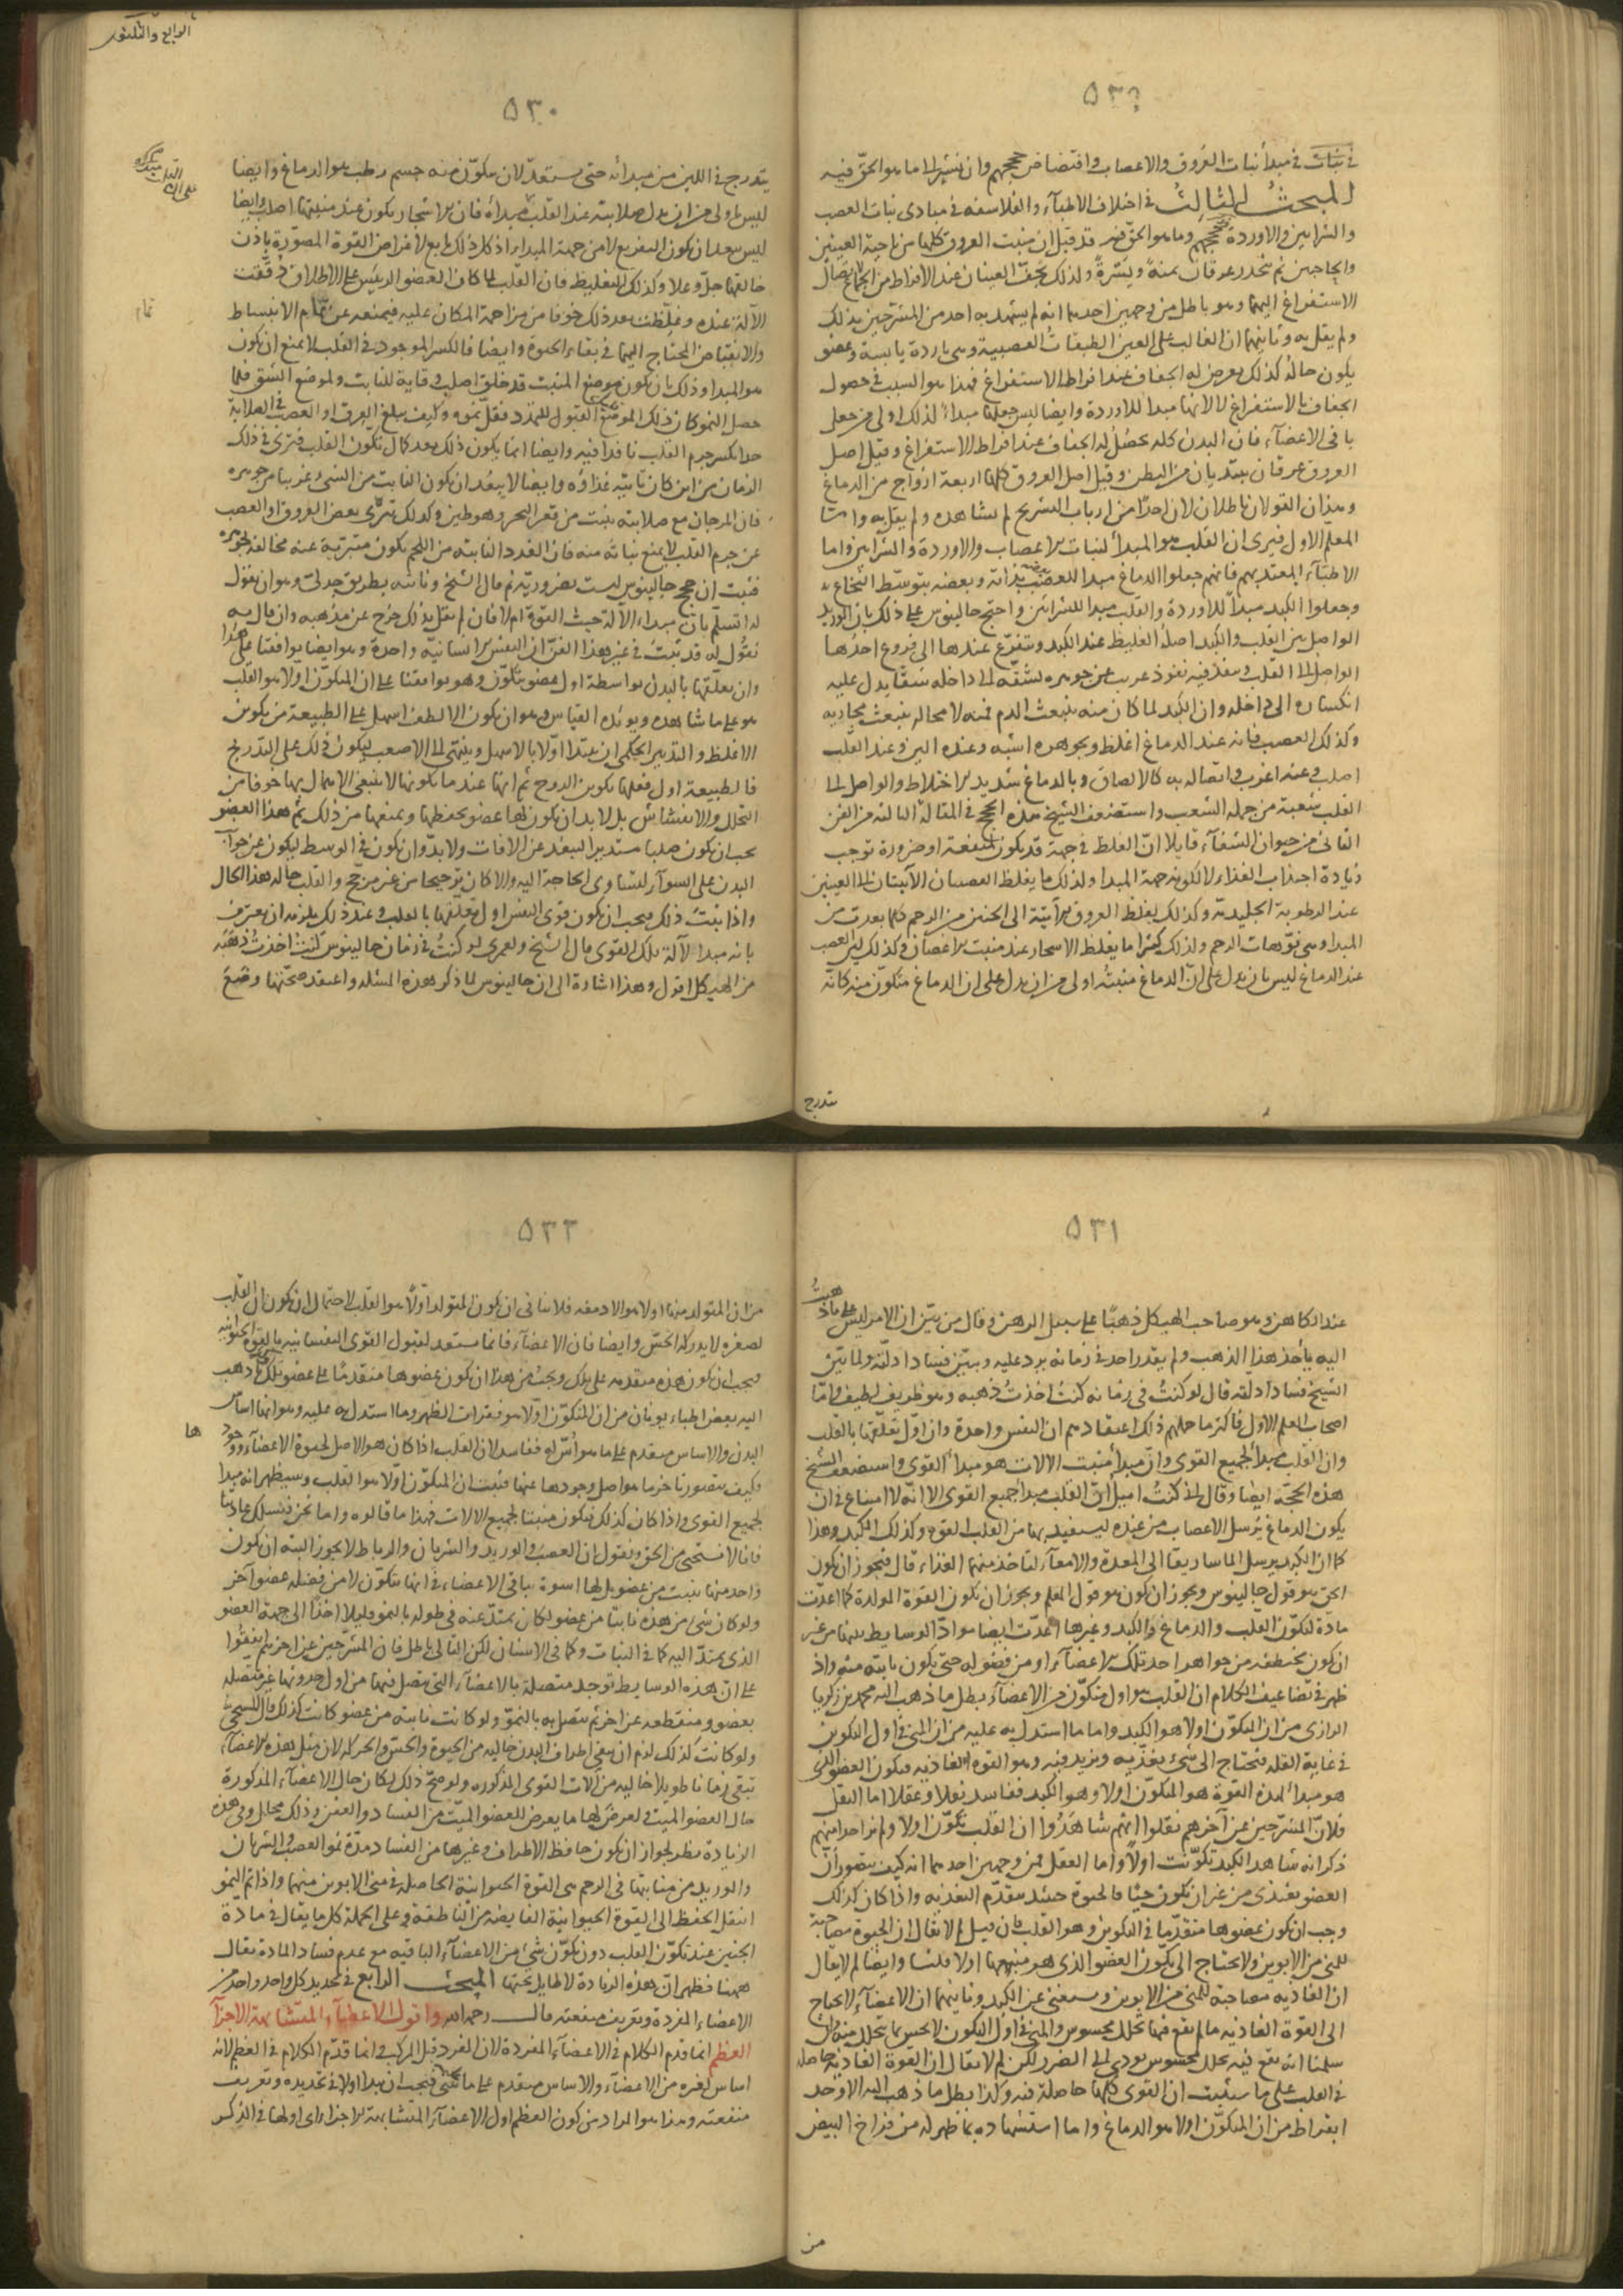 ٥٣
في نبات في مبدأ نبات العروق والاعصاب واقتضاض حججهم وان نشير الى ما هو الحق فيه
المبحث الثالث في اختلاف الاطباء والفلاسفة في مبادى نبات العصب
والشرايين والاوردة وحججهم وما هو الحق فيه قد قيل ان منبت العروق كلها من ناحية العينين
والحاجبين ثم تنحدر عرقان يمنة ويسرة ولذلك تجف العينان عند الافراط من الجماع لاتصال
الاستفراغ اليهما وهو باطل من وجهين احدهما انه لم يشهد به احد من المشرحين بذلك
ولم يقل به وثانيهما ان الغالب على العين الطبقات العصبية وهي باردة يابسة وعضو
يكون حاله كذلك يعرض له الجفاف عند افراط الاستفراغ فهذا هو السبب في حصول
الجفاف بالاستفراغ لا لانها مبدأ للاوردة وايضا ليس جعلها مبدأ لذلك اولى من جعل
باقي الاعضاء فان البدن كله يحصل له الجفاف عند افراط الاستفراغ وقيل اصل
العروق عرقان يبتديان من البطن وقيل اصل العروق كلها اربعة ازواج من الدماغ
وهذان القولان باطلان لان احدا من ارباب التشريح لم يشاهده ولم يقل به واما
المعلم الاول فيرى ان القلب هو المبدأ لنبات الاعصاب والاوردة والشرايين واما
الاطباء المعتد بهم فانهم جعلوا الدماغ مبدا للعصب بعضه بذاته وبعضه بتوسط النخاع
وجعلوا الكبد مبدأ للاوردة والقلب مبدا للشرايين واحتج جالينوس على ذلك بان الوريد
الواصل بين القلب والكبد اصله الغليظ عند الكبد ويتفرع عندها الى فروع احدها
الواصل الى القلب وينفذ فيه نفوذ غريب عن جوهره يشقه الى داخله شقا يدل عليه
انكساره الى داخله وان الكبد لما كان منه ينبعث الدم فمنه لا محالة ينبعث مجاريه
وكذلك العصب فانه عند الدماغ اغلظ وبجوهره اشبه وعنده الين وعند القلب
اصلب وعنه اغرب واتصاله به كالالصاق وبالدماغ شديد الاختلاط والواصل الى
القلب شعبة من جملة الشعب واستضعف الشيخ هذه الحجج في المقالة الثالثة من الفن
الثاني من حيوان الشفاء قايلا ان الغلظ في جهة قد يكون لمنفعة او ضرورة توجب
زيادة اجتذاب الغذاء لا لكونه جهة المبدا ولذلك ما يغلظ العصبان الآتيتان الى العينين
عند الرطوبة الجليدية وكذلك يغلظ العروق الآتية الى الجنين من الرحم كلما بعدت من
المبدا وهي فوهات الرحم ولذلك كثيرا ما يغلظ الاشجار عند منبت الاغصان وكذلك لين العصب
عند الدماغ ليس بان يدل على ان الدماغ منبته اولى من ان يدل على ان الدماغ متكون منه كانه
يتدرج
الرابع والثلثون
٥٣٠
يتدرج في اللين من مبدأئه حتى يستعد لان يتكون منه جسم رطب هو الدماغ وايضا
ليس اولى من ان يدل صلابته عند القلب مبدأه فان الاشجار يكون عند منبتها اصلب وايضا
ليس يبعد ان يكون التفريع لا من جهة المبداء اذ كل ذلك تابع لاغراض القوة المصورة باذن
خالقها جل وعلا وكذلك التغليظ فان القلب لما كان العضو الرئيس على الاطلاق دققت
الآلة عنده وغلظت بعد ذلك خوفا من مزاحمة المكان عليه فيمنعه عن تمام الانبساط
تمام
والانقباض المحتاج اليهما في بقاء الحيوة وايضا فالكسر الموجود في القلب لا يمنع ان يكون
هو المبدا وذلك بان يكون موضع المنبت قد خلق اصلب وقاية للنابت ولموضع الشق فلما
حصل النمو كان ذلك الموضع القبول للتمدد فقل نموه وكيف يبلغ العرق او العصب في الصلابة
حدا يكسر جرم القلب نافذا فيه وايضا انما يكون ذلك بعد كمال تكون القلب فترى في ذلك
الزمان من اين كان تاتيه غذاؤه وايضا لا يبعد ان يكون النابت من الشيء غريبا من جوهره
فان المرجان مع صلابته ينبت من قعر البحر وهو طين وكذلك تبرى بعض العروق او العصب
عن جرم القلب لا يمنع نباته منه فان الغدد النابتة من اللحم يكون متبرية عنه مخالفة لجوهره
فثبت ان حجج جالينوس ليست بضرورية ثم قال الشيخ وناتيه بطريق جدلي وهو ان نقول
له اتسلم بان مبداء الآلة حيث القوة ام لا فان لم يقل بذلك خرج عن مذهبه وان قال به
نقول له قد ثبت في غير هذا الفن ان النفس الانسانية واحدة وهو ايضا يوافقنا على هذا
وان تعلقها بالبدن بواسطة اول عضو يتكون وهو يوافقنا على ان المتكون اولا هو القلب
هو على ما شاهده ويويده القياس وهو ان يكون الالطف اسهل على الطبيعة من يكون
الاغلظ والتدبير الحكمي ان يبتدا اولا بالاسهل وينتهي الى الاصعب ليكون ذلك على التدريج
فالطبيعة اول فعلها تكوين الروح ثم انها عند ما تكونها لا ينبغي الاهمال بها خوفا من
التحلل والانفشاش بل لا بد ان يكون لها عضو يحفظها ويمنعها من ذلك ثم هذا العضو
يجب ان يكون صلبا مستديرا ليبعد عن الافات ولا بد وان يكون في الوسط ليكون عن اجزاء
البدن على السواء لتساوى الحاجة اليه والا كان ترجيحا من غير مرجح والقلب حاله هذا الحال
واذا ثبت ذلك فيجب ان يكون قوى النفس اول تعلقها بالقلب وعند ذلك يلزمه ان يعترف
بانه مبدا لآلة تلك القوى قال الشيخ ولعمرى لو كنت في زمان جالينوس كنت اخذت ذهبه
من الهيكل اقول وهذا اشارة الى ان جالينوس لما ذكر هذه المسئلة واعتقد صحتها وضع
٥٣١
عند الكاهن وهو صاحب الهيكل ذهبا على سبيل الرهن وقال من بين ان الامر ليس على ما ذهبت
اليه يأخذ هذا الذهب ولم يقدر احد في زمانه يرد عليه ويبين فساد ادلته ولما تبين
الشيخ فساد ادلته قال لو كنت في زمانه كنت اخذت ذهبه وهو ظريف لطيف واما
اصحاب المعلم الاول فاكثر ما حملهم ذلك اعتقادهم ان النفس واحدة وان اول تعلقها بالقلب
وان القلب مبدأ لجميع القوى وان مبدأ منبت الالات هو مبدأ القوى واستضعف الشيخ
هذه الحجة ايضا وقال اني كنت اميل ان القلب مبدأ جميع القوى الا انه لا امتناع في ان
يكون الدماغ يرسل الاعصاب من عنده ليستفيد بها من القلب القوة وكذلك الكبد وهذا
كما ان الكبد يرسل الماساريقا الى المعدة والامعاء لتاخذ منهما الغذاء قال فيجوز ان يكون
الحق هو قول جالينوس ويجوز ان يكون هو قول المعلم ويجوز ان يكون القوة المولدة كما اعدت
مادة لتكون القلب والدماغ والكبد وغيرها اعدت ايضا مواد الوسايط بينها من غير
ان يكون تختطفه من جواهر احد تلك الاعضاء او من فضوله حتى يكون نابتة منه واذ
ظهر في تضاعيف الكلام ان القلب هو اول متكون من الاعضاء بطل ما ذهب اليه محمد بن زكريا
الرازى من ان المتكون اولا هو الكبد واما ما استدل به عليه من ان المني في اول التكون
في غاية القلة فيحتاج الى شيء يغذيه ويزيد فيه وهو القوة الغاذية فيكون العضو الذي
هو مبدأ لهذه القوة هو المتكون اولا وهو الكبد ففاسد نقلا وعقلا اما النقل
فلان المشرحين عن آخرهم نقلوا انهم شاهدوا ان القلب تكون اولا ولم نر احدا منهم
ذكر انه شاهد الكبد تكونت اولا واما العقل فمن وجهين احدهما انه كيف يتصور ان
العضو يغتذى من غير ان يكون حيا فالحيوة حينئذ يتقدم التغذية واذا كان كذلك
وجب ان يكون عضوها متقدما في التكون وهو القلب فان قيل لم لا يقال ان الحيوة مصاحبة
للمني من الابوين ولا يحتاج الى تكون العضو الذي هو منبعها اولا قلنا وايضا لم لا يقال
ان الغاذية مصاحبة للمني من الابوين ويستغني عن الكبد وثانيهما ان الاعضاء لا يحتاج
الى القوة الغاذية ما لم يقع فيها تحلل محسوس والمني في اول التكون لا يحس بما يتحلل منه وان
سلمنا انه يقع فيه تحلل محسوس يودي الى الضرر لكن لم لا يقال ان القوة الغاذية حاصلة
في القلب على ما سنبين ان القوى كلها حاصلة فيه وكذا بطل ما ذهب اليه الاوحد
ابقراط من ان المتكون اولا هو الدماغ واما استشهاده بما ظهر له من فراخ البيض
من
٥٣٢
من ان المتولد منها اولا هو الادمغة فلا ينافي ان يكون المتولد اولا هو القلب لاحتمال ان يكون ان القلب
لصغره لا يدركه الحس وايضا فان الاعضاء فانما تستعد لقبول القوى النفسانية بالقوة الحيوانية
فيجب ان يكون هذه متقدمة على تلك ويجب من هذا ان يكون عضوها متقدما على عضو تلك وما ذهب
اليه بعض اطباء يونان من ان المتكون اولا هو فقرات الظهر وما استدل به عليه وهو انها اساس
البدن والاساس متقدم على ما هو اس له ففاسد لان القلب اذا كان هو الاصل لحيوة الاعضاء ووجودها
فكيف يتصور تاخر ما هو اصل وجودها عنها فثبت ان المتكون اولا هو القلب وسيظهر انه مبدا
لجميع القوى واذا كان كذلك فيكون منبتا لجميع الالات فهذا ما قالوه واما نحن فنسلك عادتنا
فانا لا نستحى من الحق ونقول ان العصب والوريد والشريان والرباط لا يجوز البتة ان يكون
واحد منها ينبت من عضو بل لها اسوة بباقي الاعضاء في انها يتكون لا من فضلة عضو آخر
ولو كان شيء من هذه نابتا من عضو لكان يمتد عنه في طوله بالنمو قليلا اخذا الى جهة العضو
الذي يمتد اليه كما في النبات وكما في الاسنان لكن التالي باطل فان المشرحين عن اخرهم اتفقوا
على ان هذه الوسايط توجد متصلة بالاعضاء التي يتصل فيها من اول حدوثها غير متصلة
بعضو ومنقطعة عن اخر ثم يتصل به بالنمو ولو كانت نابتة من عضو كانت كذلك قال المسيحي
ولو كانت كذلك لزم ان يبقى اطراف البدن خالية من الحيوة والحس والحركة لان مثل هذه الاعضاء
تبقى زمانا طويلا خالية من آلات القوى المذكورة ولو صح ذلك لكان حال الاعضاء المذكورة
حال العضو الميت في تعرض لها ما يعرض للعضو الميت من الفساد والعفن وذلك محال وفي هذه
الزيادة نظر لجواز ان يكون حافظ الاطراف وغيرها من الفساد مدة نمو العصب والشريان
والوريد من منابتها في الرحم هي القوة الحيوانية الحاصلة في مني الابوين منهما واذا تم النمو
انتقل الحفظ الى القوة الحيوانية الفايضة من الناطقة وعلى الجملة كل ما يقال في مادة
الجنين عند تكون القلب دون تكون شيء من الاعضاء الباقية مع عدم فساد المادة يقال
ههنا فظهر ان هذه الزيادة لا طايل تحتها المبحث الرابع في تحديد كل واحد واحد من
الاعضاء المفردة وتعريف منفعته قال رحمه الله واقول الاعضاء المتشابهة الاجزاء
العظم انما قدم الكلام في الاعضاء المفردة لان المفرد قبل المركب وانما قدم الكلام في العظم لانه
اساس لغيره من الاعضاء والاساس متقدم على ما يبنى فيجب ان يبدا اولا في تحديده وتعريف
منفعته وهذا هو المراد من كون العظم اول الاعضاء المتشابهة الاجزاء اى اولها في الذكر